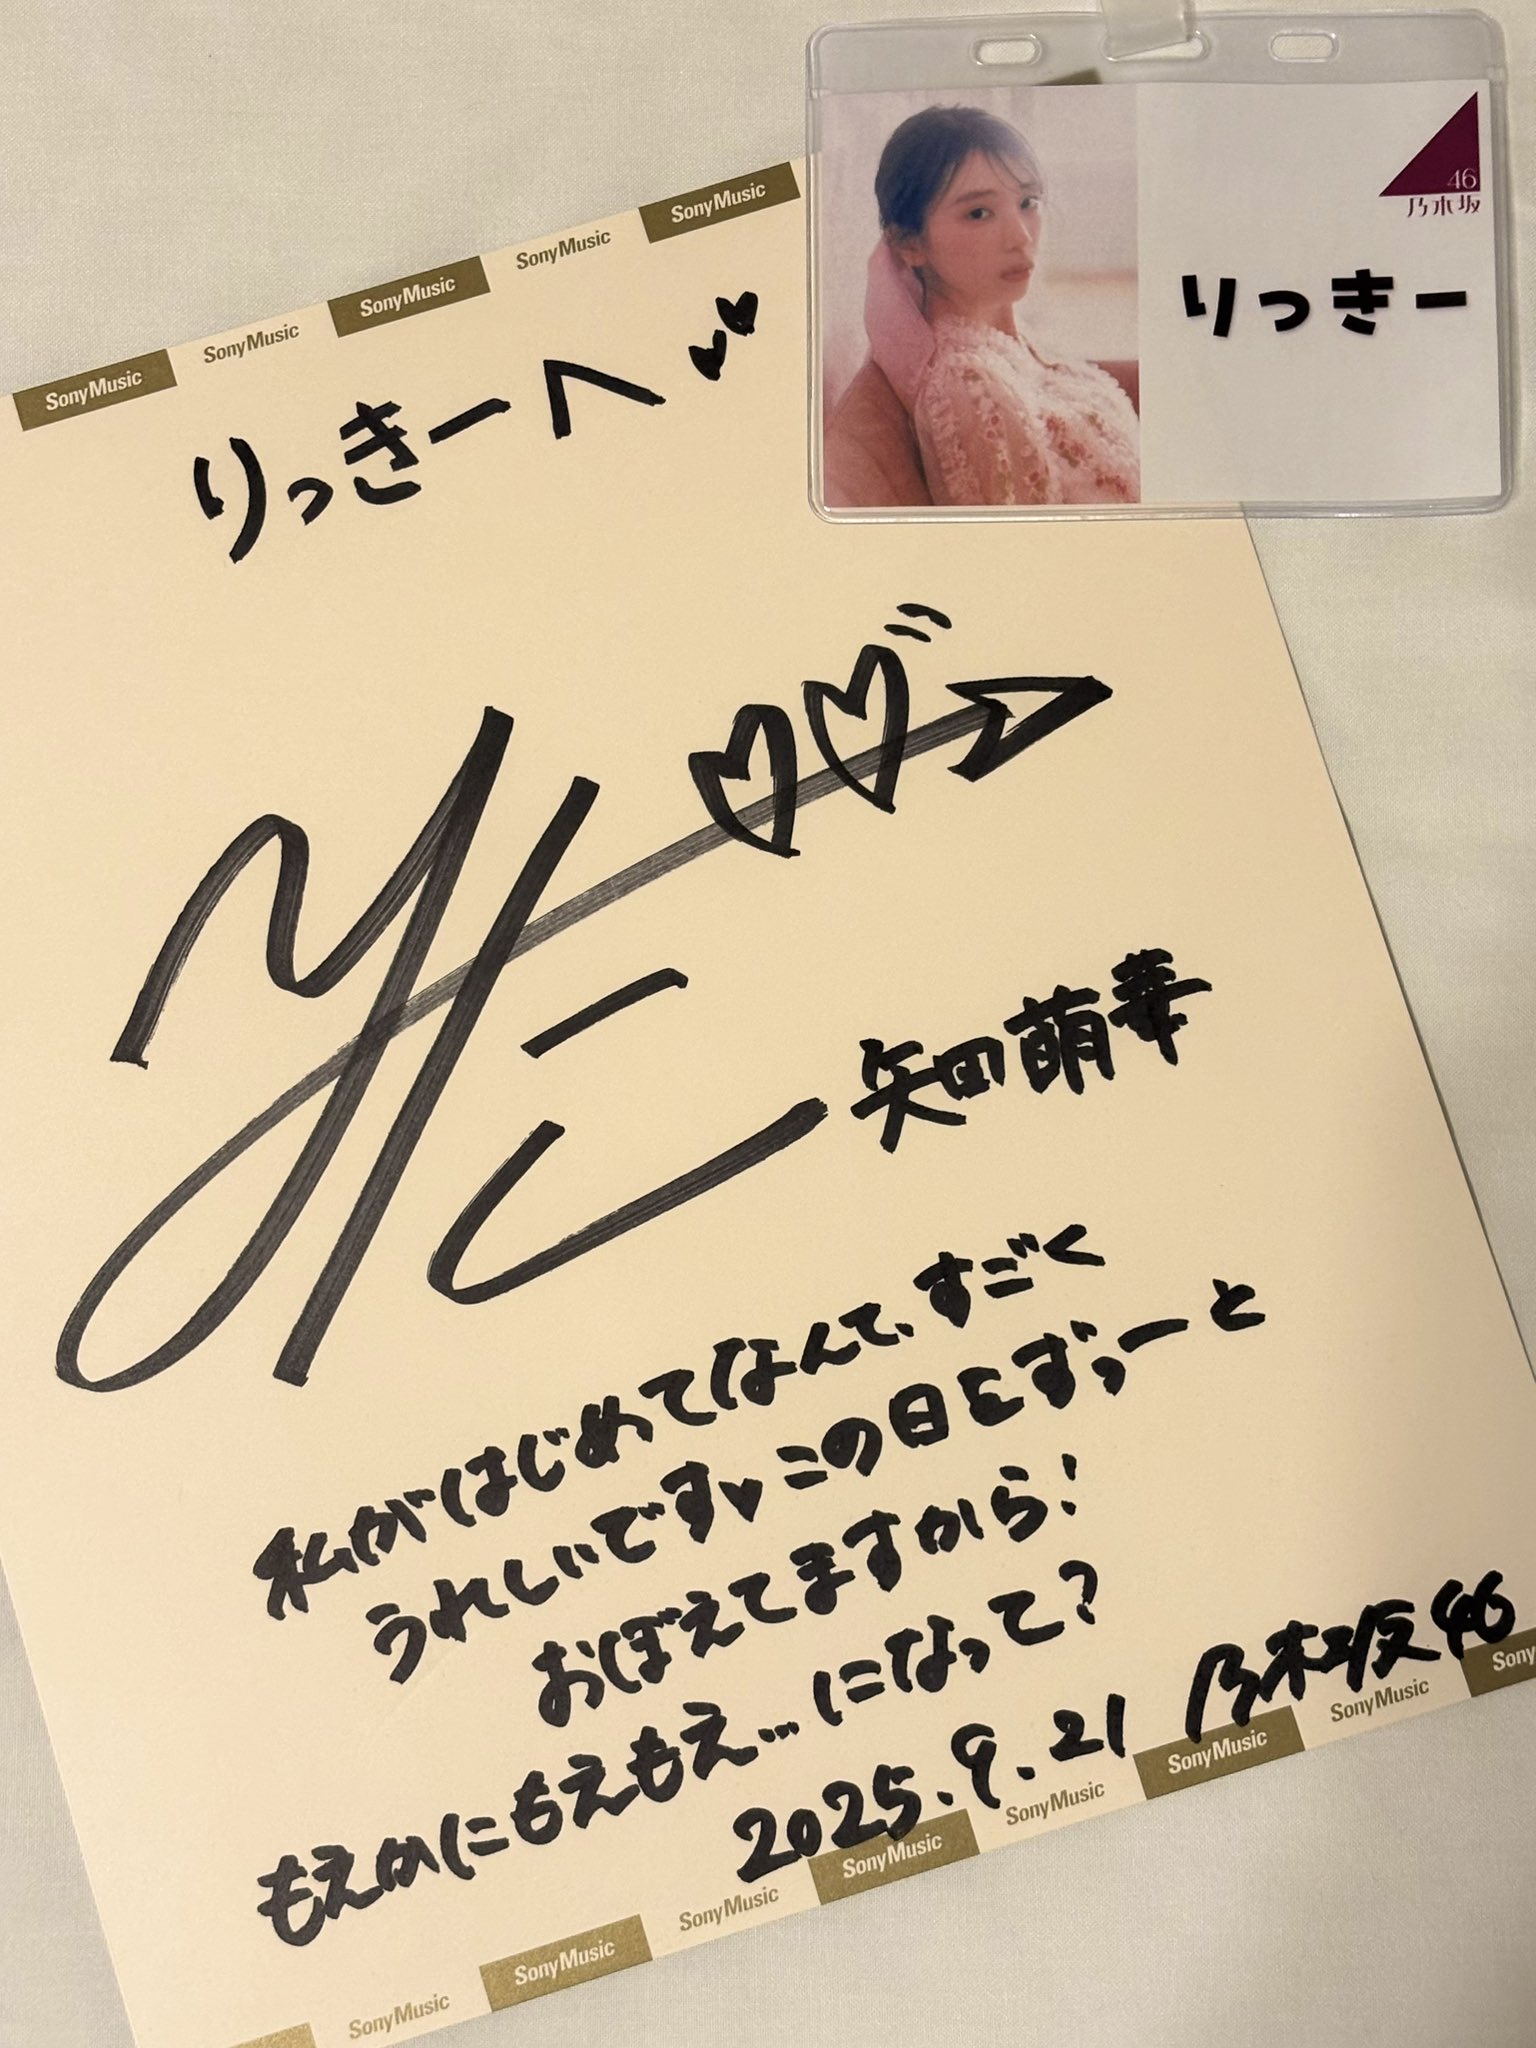 46
乃木坂
りっきー
SonyMusic SonyMusic SonyMusic SonyMusic SonyMusic
りっきーへ♥♥
矢田萌華
私がはじめてなんて、すごく
うれしいです♥この日をずっーと
おぼえてますから!
もえかにもえもえ...になって?
2025.9.21 乃木坂46
SonyMusic SonyMusic SonyMusic SonyMusic SonyMusic SonyMusic Sony